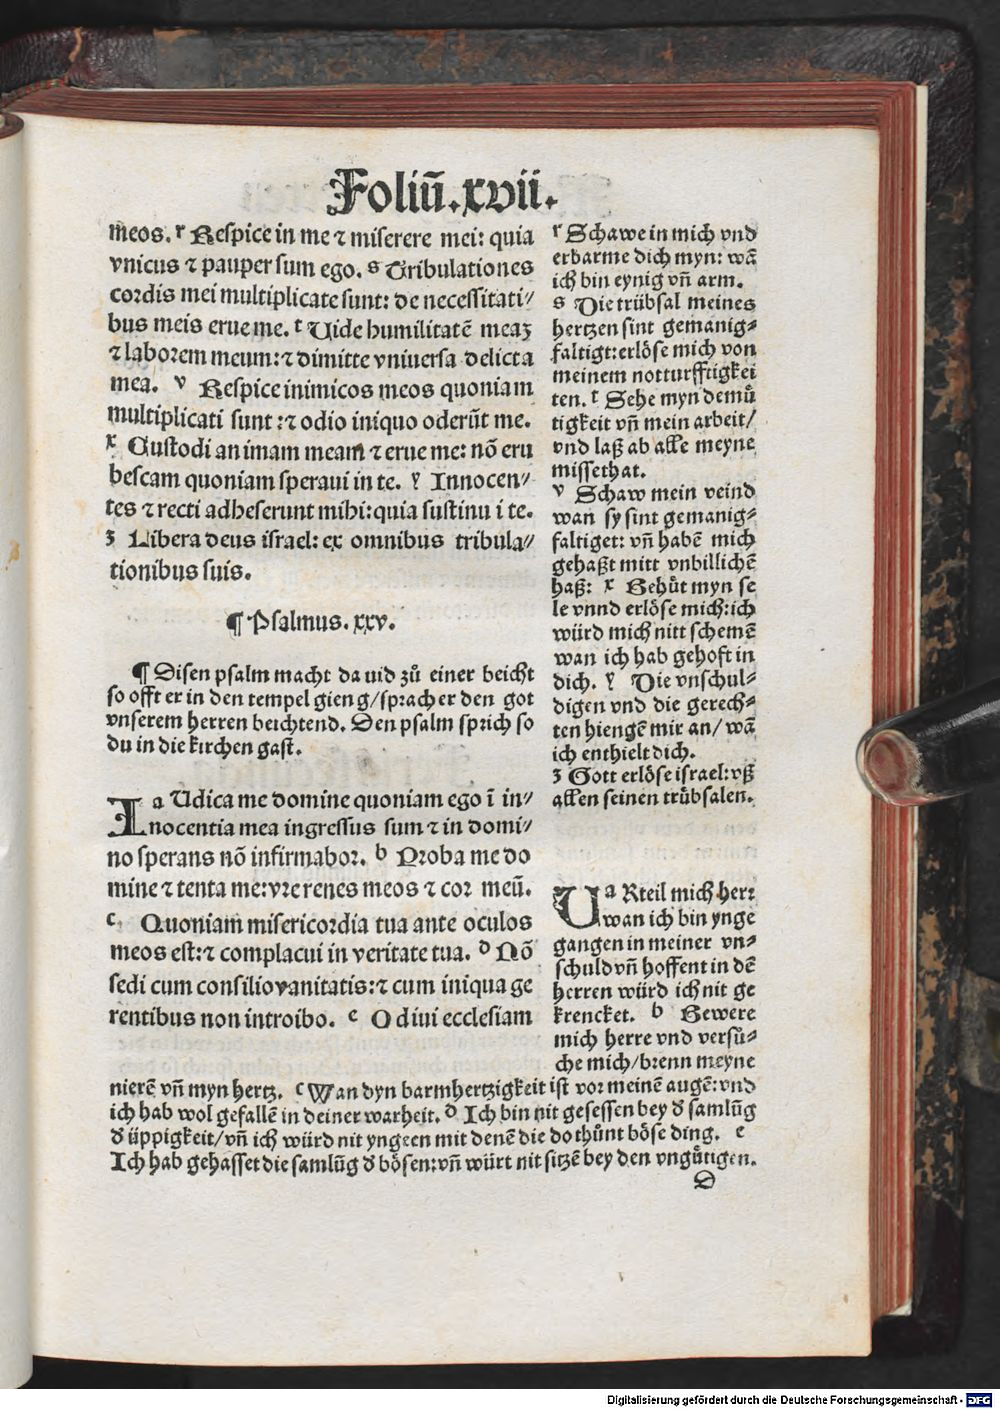 Foliū.xvii.
meos. r Respice in me ⁊ miserere mei: quia
vnicus ⁊ pauper sum ego. s Tribulationes
cordis mei multiplicate sunt: de necessitati⸗
bus meis erue me. t Uide humilitatē meaꝫ
⁊ laborem meum:⁊ dimitte vniuersa delicta
mea. v Respice inimicos meos quoniam
multiplicati sunt :⁊ odio iniquo oderūt me.
x Custodi animam meam ⁊ erue me: nō eru
bescam quoniam speraui in te. y Innocen⸗
tes ⁊ recti adheserunt mihi:quia sustinu i te.
z Libera deus israel: ex omnibus tribula⸗
tionibus suis.
¶ Psalmus. xxv.
¶ Disen psalm macht dauid zů einer beicht
so offt er in den tempel gieng/sprach er den got
vnserem herren beichtend. Den psalm sprich so
du in die kirchen gast.
I a Udica me domine quoniam ego ī in⸗
nocentia mea ingressus sum ⁊ in domi⸗
no sperans nō infirmabor. b Proba me do
mine ⁊ tenta me:vre renes meos ⁊ cor meū.
c Quoniam misericordia tua ante oculos
meos est:⁊ complacui in veritate tua. d Nō
sedi cum consilio vanitatis:⁊ cum iniqua ge
rentibus non introibo. e Odiui ecclesiam
r Schawe in mich vnd
erbarme dich myn: wā
ich bin eynig vn̄ arm.
s Die trübsal meines
hertzen sint gemanig⸗
faltigt:erlöse mich von
meinem notturfftigkei
ten. t Sehe myn demů
tigkeit vn̄ mein arbeit/
vnd laß ab alle meyne
missethat.
v Schaw mein veind
wan sy sint gemanig⸗
faltiget: vn̄ habē mich
gehaßt mitt vnbillichē
haß: x Behůt myn se
le vnnd erlöse mich:ich
würd mich nitt schemē
wan ich hab gehoft in
dich. y Die vnschul⸗
digen vnd die gerech⸗
ten hiengē mir an/ wā
ich enthielt dich.
z Gott erlöse israel:vß
allen seinen trübsalen.
U a Rteil mich herr
wan ich bin ynge
gangen in meiner vn⸗
schuld vn̄ hoffent in dē
herren würd ich nit ge
krencket. b Bewere
mich herre vnd versů⸗
che mich/brenn meyne
nierē vn̄ myn hertz. c Wan dyn barmhertzigkeit ist vor meinē augē:vnd
ich hab wol gefallē in deiner warheit. d Ich bin nit gesessen bey ď samlūg
ď üppigkeit/vn̄ ich würd nit yngeen mit denē die do thůnt böse ding. e
Ich hab gehasset die samlūg ď bösen:vn̄ würt nit sitzē bey den vngůtigen.
D
Digitalisierung gefördert durch die Deutsche Forschungsgemeinschaft - DFG